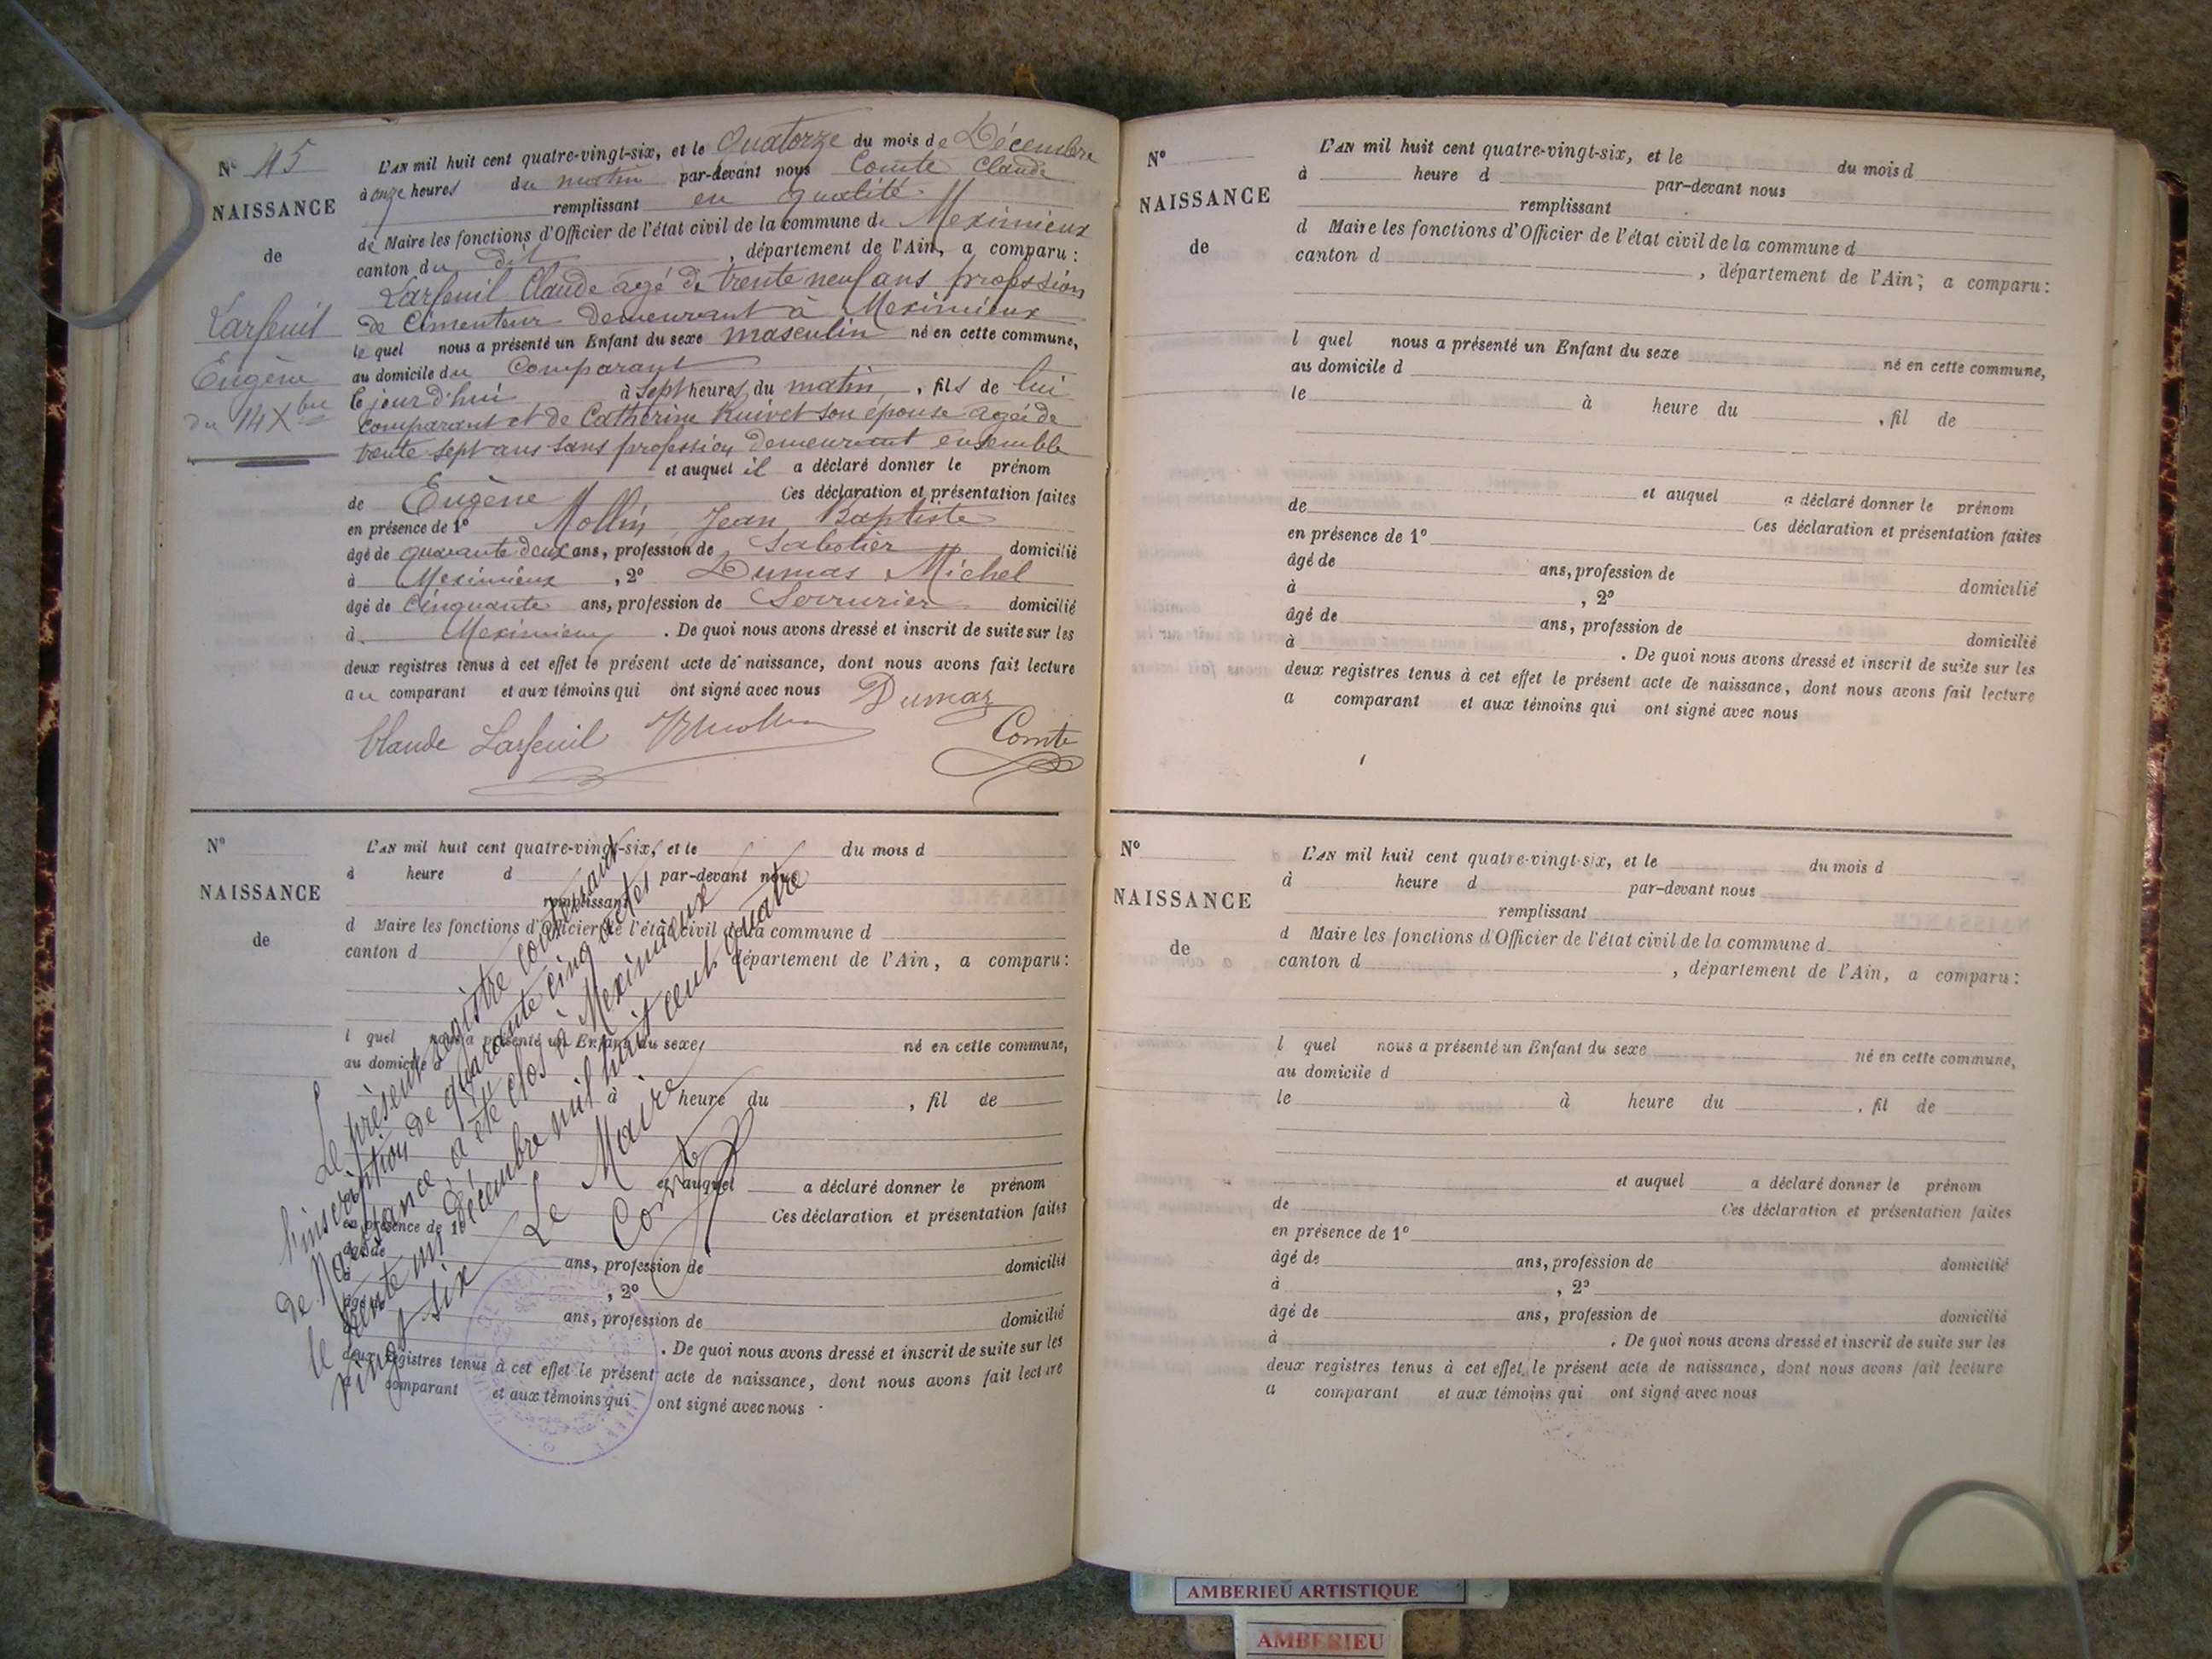 N° 45
NAISSANCE
de
Larfeuil
Eugène
du 14 Xbre
L'AN mil huit cent quatre-vingt-six, et le Quatorze du mois de Décembre
à onze heures du matin par-devant nous Comte Claude
remplissant en qualité
de Maire les fonctions d'Officier de l'état civil de la commune de Meximieux
canton du dit, département de l'Ain, a comparu :
Larfeuil Claude agé de trente neuf ans profession
de Cimenteur demeurant à Meximieux
le quel nous a présenté un Enfant du sexe masculin né en cette commune,
au domicile du Comparant
le jour d'hui à sept heures du matin, fils de lui
comparant et de Catherine Ruivet son épouse agée de
trente sept ans sans profession demeurant ensemble
et auquel il a déclaré donner le prénom
de Eugène Ces déclaration et présentation faites
en présence de 1° Mollin Jean Baptiste
âgé de quarante deux ans, profession de Sabotier domicilié
à Meximieux, 2° Dumas Michel
âgé de Cinquante ans, profession de Serrurier domicilié
à Meximieux. De quoi nous avons dressé et inscrit de suite sur les
deux registres tenus à cet effet le présent acte de naissance, dont nous avons fait lecture
au comparant et aux témoins qui ont signé avec nous Dumas
Claude Larfeuil Comte
N°
NAISSANCE
de
L'AN mil huit cent quatre-vingt-six, et le du mois d
à heure d par-devant nous
remplissant
d Maire les fonctions d'Officier de l'état civil de la commune d
canton d département de l'Ain, a comparu :
l quel nous a présenté un Enfant du sexe né en cette commune,
au domicile d
à heure du , fil de
et auquel a déclaré donner le prénom
Ces déclaration et présentation faites
en présence de 1°
âgé de ans, profession de domicilié
, 2°
âgé de ans, profession de domicilié
. De quoi nous avons dressé et inscrit de suite sur les
deux registres tenus à cet effet le présent acte de naissance, dont nous avons fait lecture
comparant et aux témoins qui ont signé avec nous
Le présent registre contenant
l'inscription de quarante cinq actes
de Naissance a été clos à Meximieux
le trente un décembre mil huit cent quatre
vingt six
Le Maire
Comte
N°
NAISSANCE
de
L'AN mil huit cent quatre-vingt-six, et le du mois d
à heure d par-devant nous
remplissant
d Maire les fonctions d'Officier de l'état civil de la commune d
canton d , département de l'Ain ; a comparu :
l quel nous a présenté un Enfant du sexe né en cette commune,
au domicile d
le à heure du , fil de
et auquel a déclaré donner le prénom
de Ces déclaration et présentation faites
en présence de 1°
âgé de ans, profession de domicilié
à , 2°
âgé de ans, profession de domicilié
à . De quoi nous avons dressé et inscrit de suite sur les
deux registres tenus à cet effet le présent acte de naissance, dont nous avons fait lecture
a comparant et aux témoins qui ont signé avec nous
N°
NAISSANCE
de
L'AN mil huit cent quatre-vingt-six, et le du mois d
à heure d par-devant nous
remplissant
d Maire les fonctions d'Officier de l'état civil de la commune d
canton d , département de l'Ain, a comparu :
l quel nous a présenté un Enfant du sexe né en cette commune,
au domicile d
le à heure du , fil de
et auquel a déclaré donner le prénom
de Ces déclaration et présentation faites
en présence de 1°
âgé de ans, profession de domicilié
à , 2°
âgé de ans, profession de domicilié
à . De quoi nous avons dressé et inscrit de suite sur les
deux registres tenus à cet effet le présent acte de naissance, dont nous avons fait lecture
a comparant et aux témoins qui ont signé avec nous
AMBERIEU ARTISTIQUE
AMBERIEU